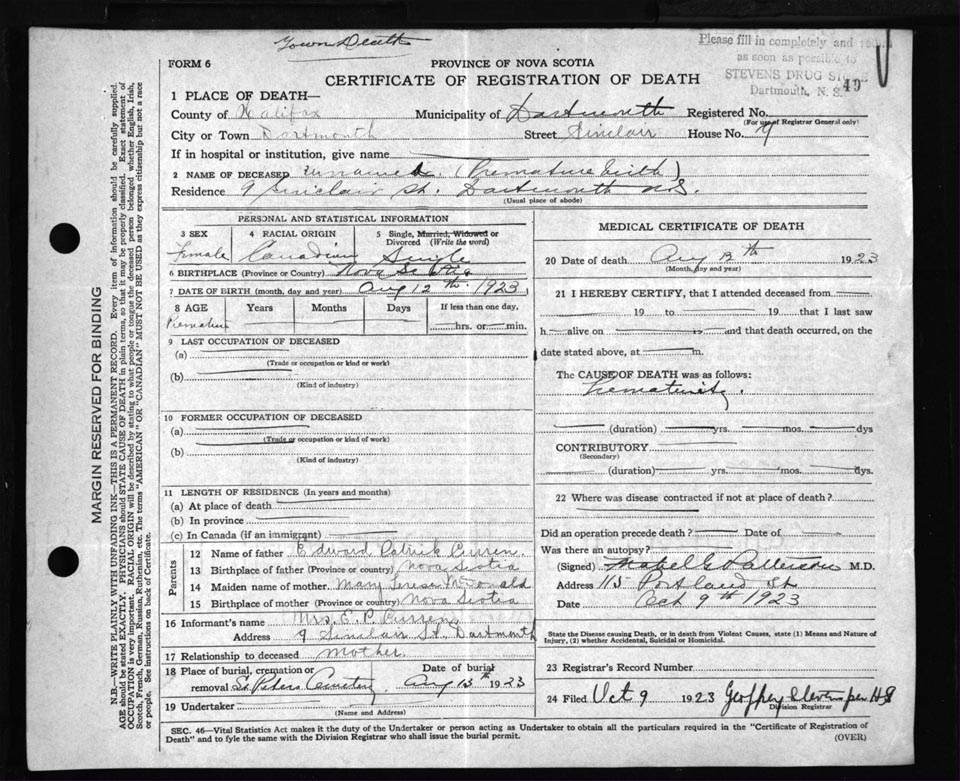 Town Death
Please fill in completely and
as soon as possible to
STEVENS DRUG
Dartmouth, N. S.
49
FORM 6
PROVINCE OF NOVA SCOTIA
CERTIFICATE OF REGISTRATION OF DEATH
1 PLACE OF DEATH—
County of Halifax Municipality of Dartmouth Registered No.
(For use of Registrar General only)
City or Town Dartmouth Street Sinclair House No. 9
If in hospital or institution, give name
2 NAME OF DECEASED Unnamed (Premature birth)
Residence 9 Sinclair St. Dartmouth N.S.
(Usual place of abode)
PERSONAL AND STATISTICAL INFORMATION
3 SEX 4 RACIAL ORIGIN 5 Single, Married, Widowed or
Divorced (Write the word)
Female Canadian Single
6 BIRTHPLACE (Province or Country) Nova Scotia
7 DATE OF BIRTH (month, day and year) Aug 12th 1923
8 AGE Years Months Days If less than one day,
Premature hrs. or min.
9 LAST OCCUPATION OF DECEASED
(a)
(Trade or occupation or kind of work)
(b)
(Kind of industry)
10 FORMER OCCUPATION OF DECEASED
(a)
(Trade or occupation or kind of work)
(b)
(Kind of industry)
11 LENGTH OF RESIDENCE (In years and months)
(a) At place of death
(b) In province
(c) In Canada (if an immigrant)
Parents
12 Name of father Edward Patrick Curren
13 Birthplace of father (Province or Country) Nova Scotia
14 Maiden name of mother Mary Teresa McDonald
15 Birthplace of mother (Province or country) Nova Scotia
16 Informant's name Mrs. E. P. Curren
Address 9 Sinclair St. Dartmouth
17 Relationship to deceased Mother.
18 Place of burial, cremation or Date of burial
removal St Peters Cemetery Aug 13th 1923
19 Undertaker
(Name and Address)
MEDICAL CERTIFICATE OF DEATH
20 Date of death Aug 12th 1923
(Month, day and year)
21 I HEREBY CERTIFY, that I attended deceased from
19 to 19 that I last saw
h alive on and that death occurred, on the
date stated above, at m.
The CAUSE OF DEATH was as follows:
Prematurity.
(duration) yrs. mos. dys
CONTRIBUTORY
(Secondary)
(duration) yrs. mos. dys.
22 Where was disease contracted if not at place of death?
Did an operation precede death? Date of
Was there an autopsy?
(Signed) Mabel G Patterson M.D.
Address 115 Portland St
Date Oct 9th 1923
State the Disease causing Death, or in death from Violent Causes, state (1) Means and Nature of
Injury, (2) whether Accidental, Suicidal or Homicidal.
23 Registrar's Record Number
24 Filed Oct 9 1923 Geoffrey Stevens per HS
Division Registrar
SEC. 46—Vital Statistics Act makes it the duty of the Undertaker or person acting as Undertaker to obtain all the particulars required in the "Certificate of Registration of
Death" and to fyle the same with the Division Registrar who shall issue the burial permit. (OVER)
MARGIN RESERVED FOR BINDING
N.B.—WRITE PLAINLY WITH UNFADING INK—THIS IS A PERMANENT RECORD. Every item of information should be carefully supplied.
AGE should be stated EXACTLY. PHYSICIANS should STATE CAUSE OF DEATH in plain terms, so that it may be properly classified. Exact statement of
OCCUPATION is very important. RACIAL ORIGIN will be described by stating to what people or tongue the deceased person belonged whether English, Irish,
Scotch, French, German, Russian, Ruthenian, etc. The terms "AMERICAN" OR "CANADIAN" MUST NOT BE USED as they express citizenship but not a race
or people. See instructions on back of Certificate.